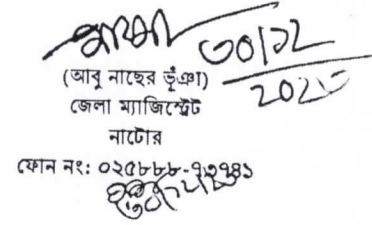 ৩০/১২
(আবু নাছের ভূঁঞা)
জেলা ম্যাজিস্ট্রেট
নাটোর
ফোন নং: ০২৫৮৮৮-৭৩৭৪১